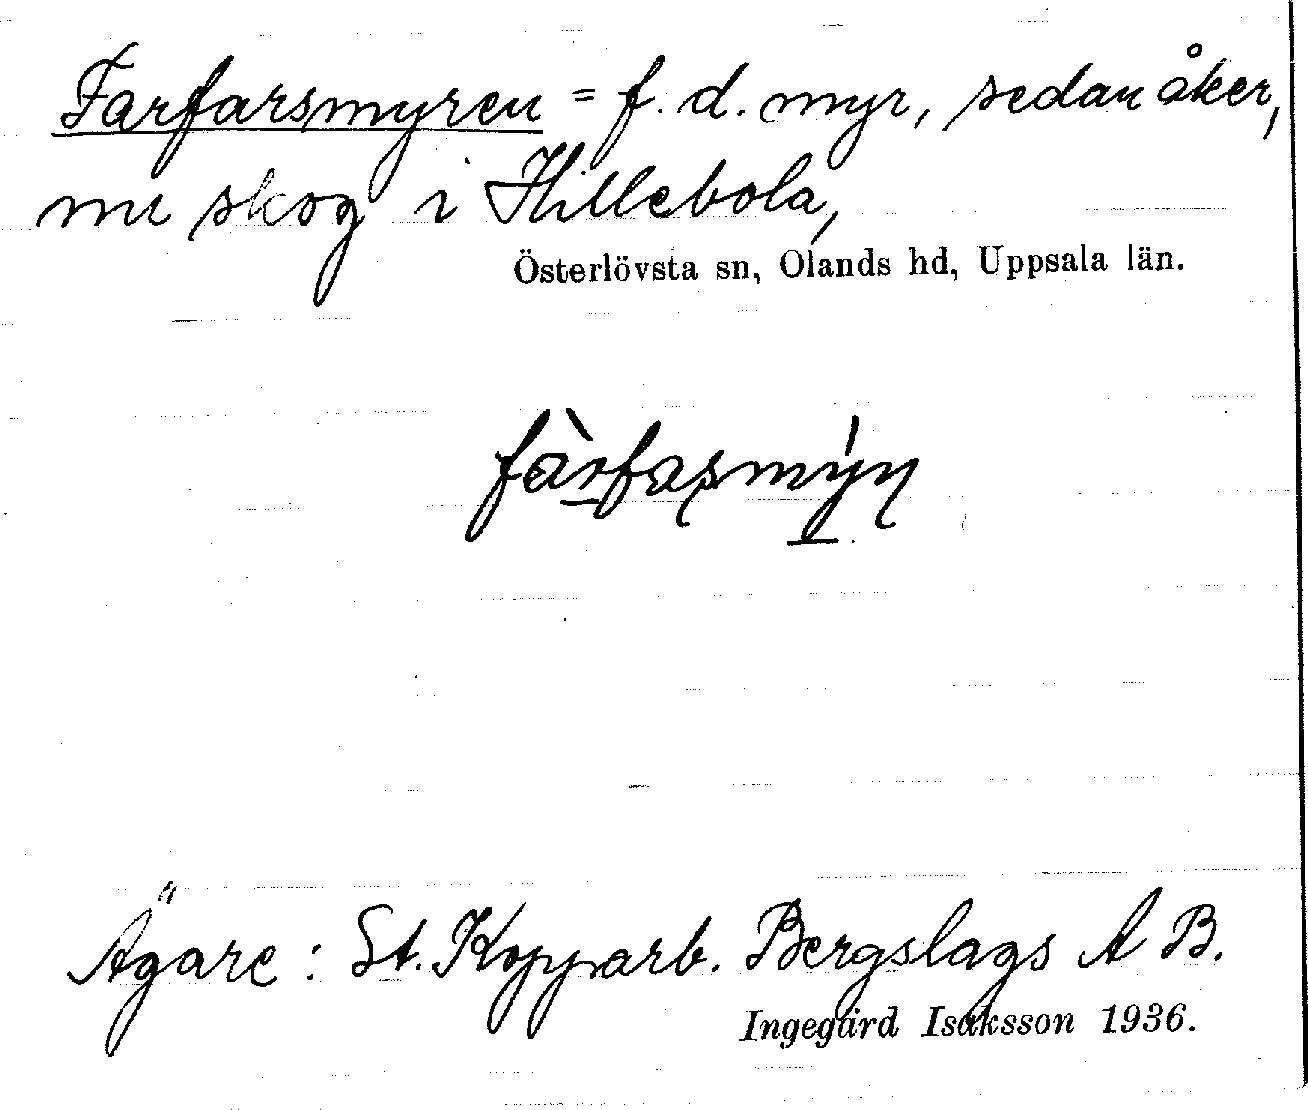 Farfarsmyren = f. d. myr, sedan åker,
nu skog i Hillebola,
Österlövsta sn, Olands hd, Uppsala län.
fàrfasmýn
Ägare: St. Kopparb. Bergslags A B.
Ingegärd Isaksson 1936.